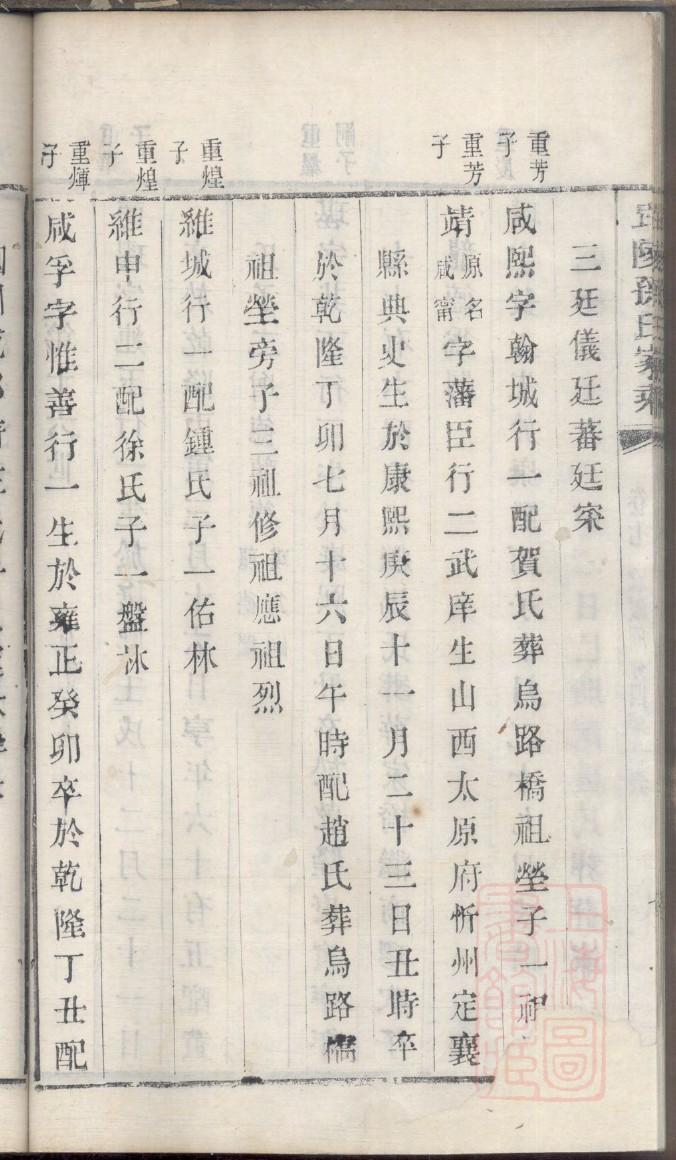 毘陵孫氏家乘
三廷儀廷蕃廷寀
重芳子
咸熙字翰城行一配賀氏葬烏路橋祖塋子一祀
重芳子
靖原名咸甯字藩臣行二武庠生山西太原府忻州定襄
縣典史生於康熙庚辰十一月二十三日丑時卒
於乾隆丁卯七月十六日午時配趙氏葬烏路橋
祖塋旁子三祖修祖應祖烈
重煌子
維城行一配鍾氏子一佑林
重煌子
維申行二配徐氏子一盤冰
重煇子
咸孚字惟善行一生於雍正癸卯卒於乾隆丁丑配